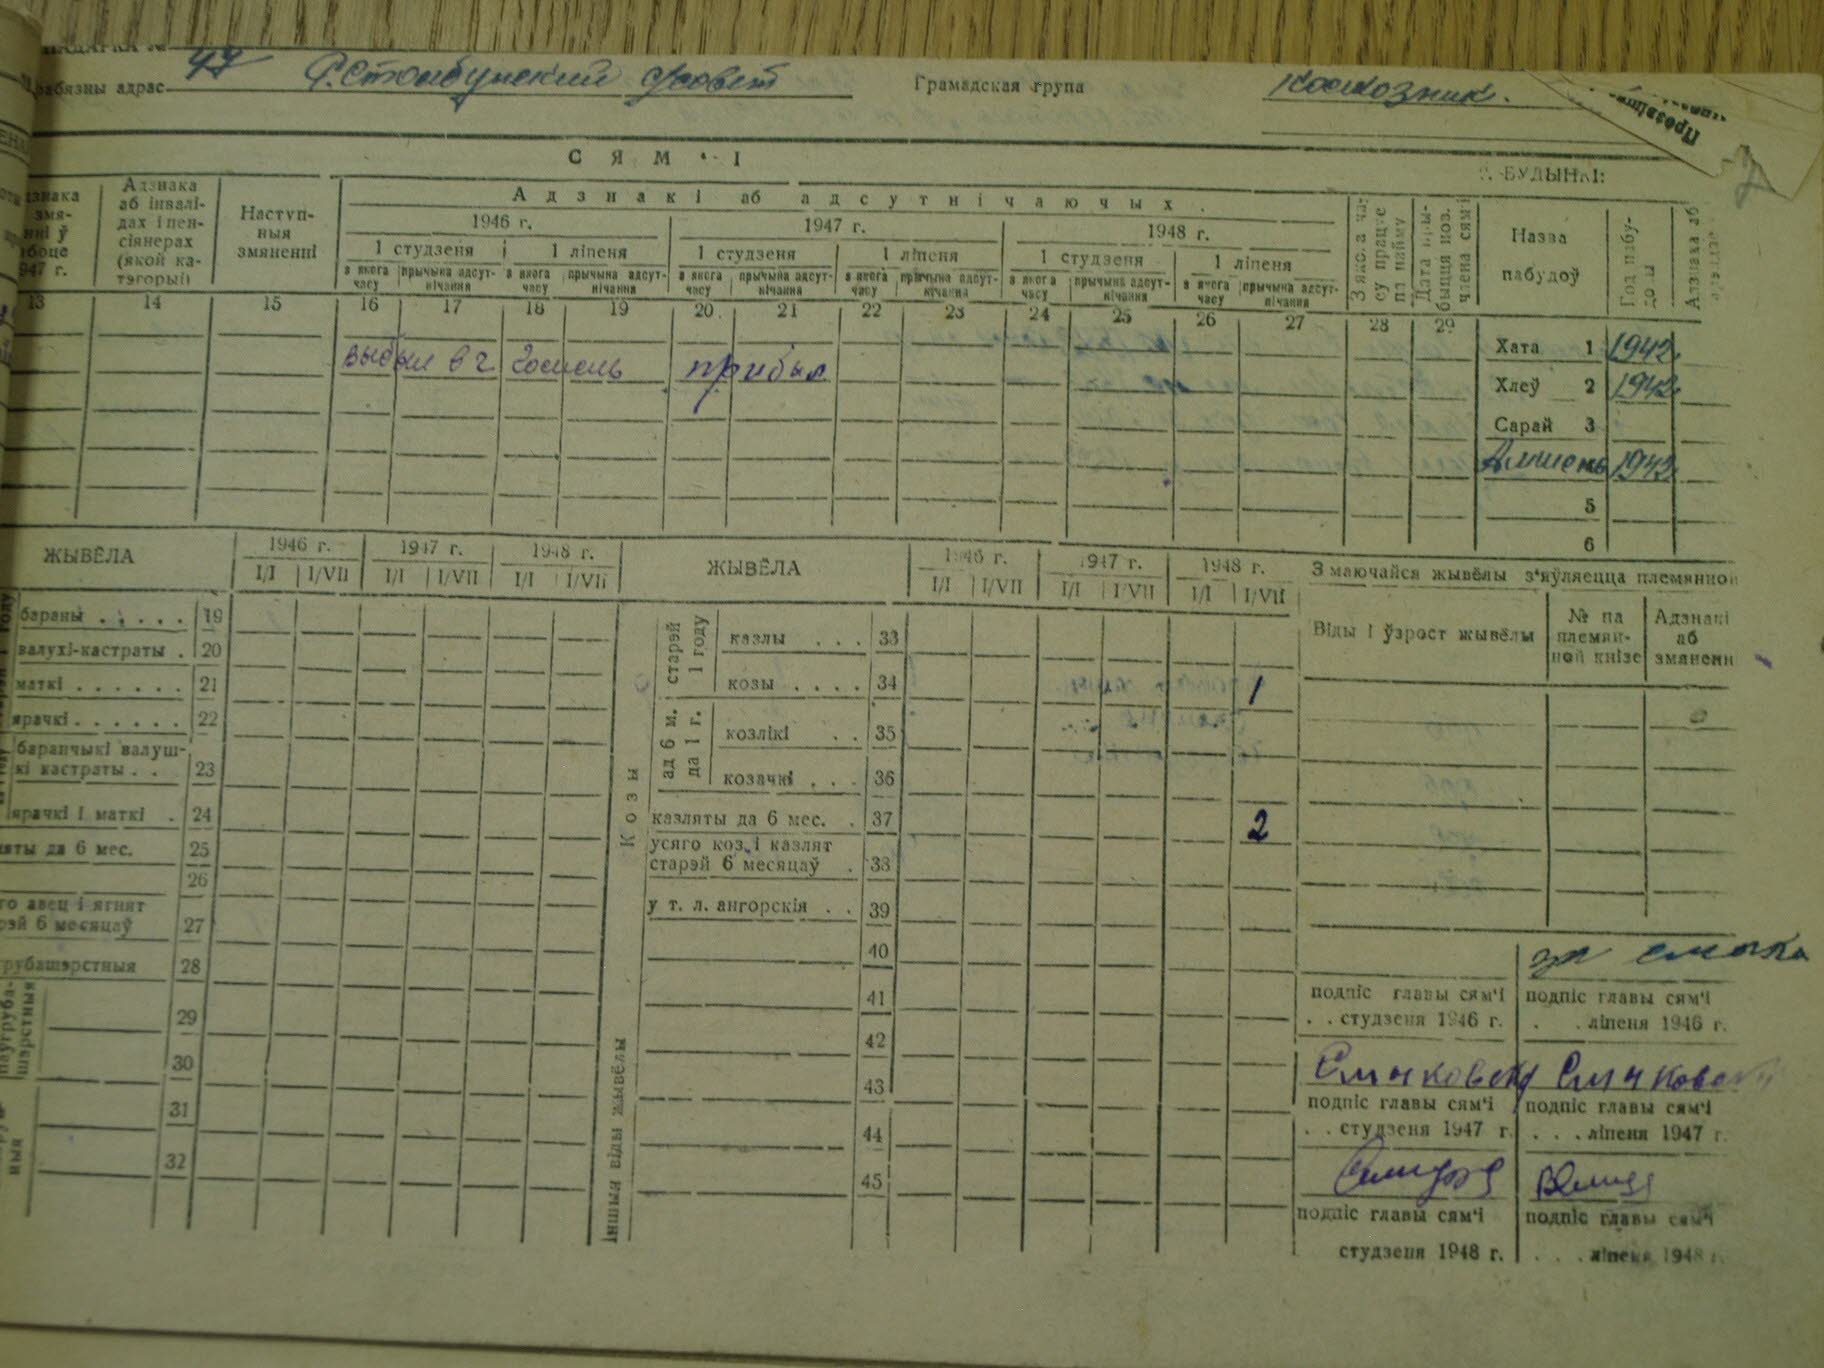 47
абязны адрас Р.Столбунский с/совет Грамадская група колхозник.
СЯМ'І
2. БУДЫНКІ:
Адзнака аб інвалідах і пенсіянерах (якой катэгорыі)
Наступныя змяненні
Адзнакі аб адсутнічаючых
1946 г. 1947 г. 1948 г.
1 студзеня 1 ліпеня 1 студзеня 1 ліпеня 1 студзеня 1 ліпеня
з якога часу прычына адсутнічання з якога часу прычына адсутнічання з якога часу прычына адсутнічання з якога часу прычына адсутнічання з якога часу прычына адсутнічання з якога часу прычына адсутнічання
Назва пабудоў
Год пабудовы
13 14 15 16 17 18 19 20 21 22 23 24 25 26 27 28 29
выбыл в г. Гомель прибыл
Хата 1 1942
Хлеў 2 1942
Сарай 3
1943
5
6
ЖЫВЁЛА 1946 г. 1947 г. 1948 г.
I/I I/VII I/I I/VII I/I I/VII
бараны 19
валухі-кастраты 20
маткі 21
ярачкі 22
баранчыкі валуш-
кі кастраты 23
ярачкі і маткі 24
яты да 6 мес. 25
26
го авец і ягнят
рэй 6 месяцаў 27
грубашэрстныя 28
29
30
31
32
ЖЫВЁЛА 1946 г. 1947 г. 1948 г.
I/I I/VII I/I I/VII I/I I/VII
Козы
старэй 1 году
казлы 33
козы 34 1
ад 6 м. да 1 г.
козлікі 35
козачкі 36
казляты да 6 мес. 37 2
усяго коз і казлят
старэй 6 месяцаў 38
у т. л. ангорскія 39
40
іншыя віды жывёлы
41
42
43
44
45
З маючайся жывёлы з'яўляецца племянной
Віды і ўзрост жывёлы
№ па племян-
ной кнізе
Адзнакі
аб
змяненн
подпіс главы сям'і подпіс главы сям'і
студзеня 1946 г. ліпеня 1946 г.
Смыковск Смыковск
подпіс главы сям'і подпіс главы сям'і
студзеня 1947 г. ліпеня 1947 г.
подпіс главы сям'і подпіс главы сям'і
студзеня 1948 г. ліпеня 1948 г.